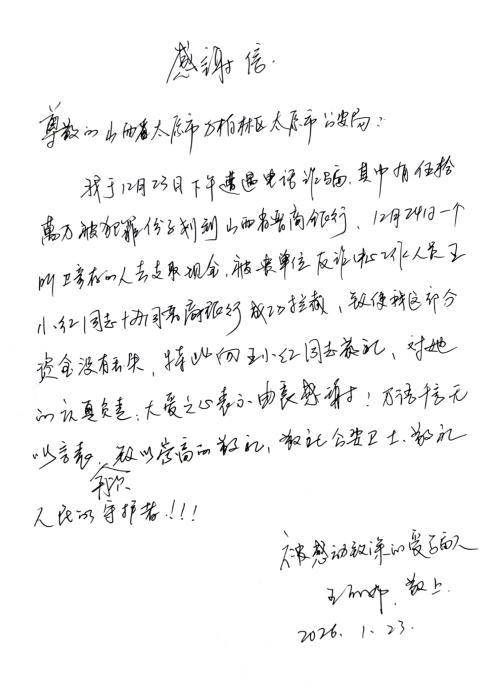 感謝信.
尊敬的山西省太原市万柏林区太原市公安局:
我于12月23日下午遭遇电话诈骗. 其中有伍拾
萬万被犯罪份子划到山西省晋商银行, 12月24日一个
叫卫的人去支取现金, 被贵单位反诈中心工作人员王
小红同志协同晋商银行成功拦截, 致使我这部分
资金没有丢失, 特此向王小红同志敬礼, 对她
的认真负责, 大爱之心表示由衷感谢! 万语千言无
以言表, 致以崇高的敬礼, 敬礼公安卫士. 敬礼
人民的守护者!!!
被感动致深的受骗人
王 敬上.
2026. 1. 23.